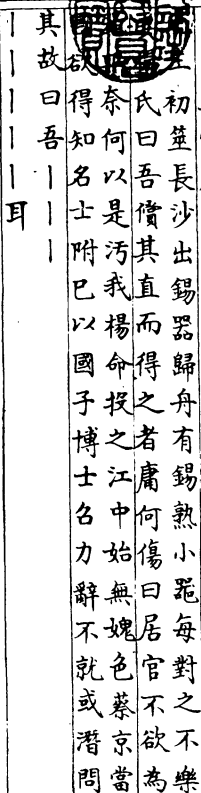 初筮長沙出錫器歸舟有錫熟小罂每對之不樂
氏曰吾償其直而得之者庸何傷曰居官不欲為
奈何以是污我楊命投之江中始無媿色蔡京當
欲得知名士附巳以國子博士召力辭不就或潛問
其故曰吾丨丨丨
丨丨丨丨丨耳